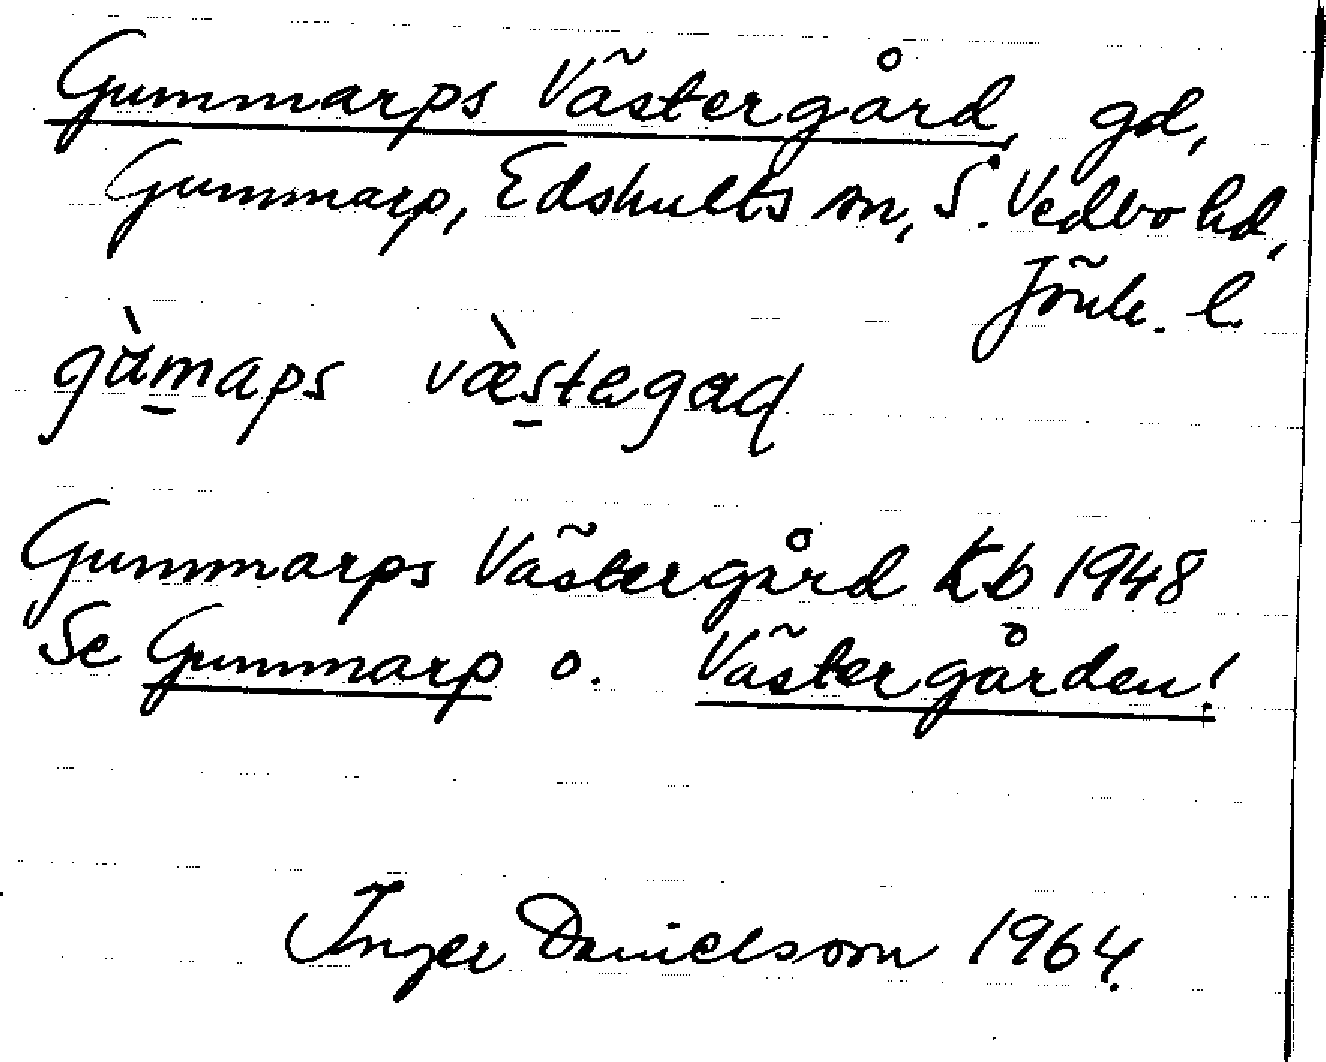 Gummarps Västergård, gd,
Gummarp, Edshults sn, S. Vedbo hd,
Jönk. l
gùmaps væ̀stegaɖ
Gummarps Västergård Kb 1948
Se Gummarp o. Västergården!
Inger Danielsson 1964.